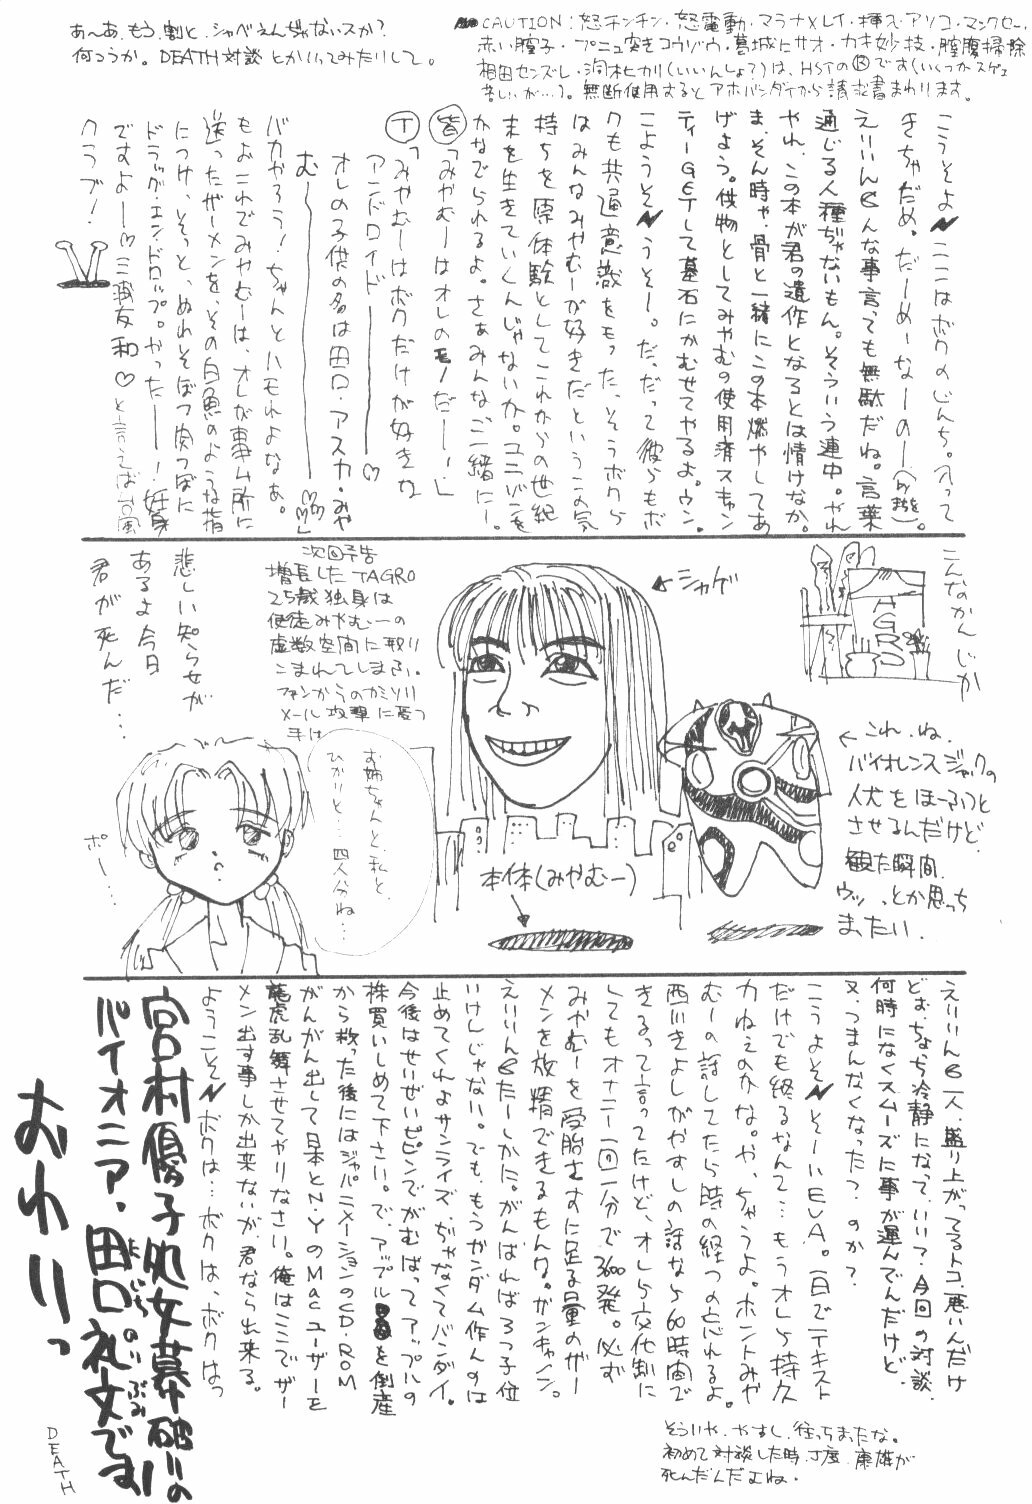 あ〜あ、もう、割と、シャベえんぢゃないスか?
何つうか。DEATH対談とかいってみたりして。
CAUTION:怒チンチン・怒電動・マラナ×レイ・挿入・アソコ・マンクセー・
赤い膣子・プニュ突きコウゾウ・葛城ニサオ・カキ妙技・膣腹掃除
相田センズレ・洞木ヒカリ(いいんしょ?)は、HSTのⓇです(いくつかスゲェ
苦しいが…)。無断使用するとアホバンダイから請求書まわります。
こうそよ ここはボクのじんち。入って
きちゃだめ。だーめーなーのー
えいいんGんな事言っても無駄だね。言葉
通じる人種ぢゃないもん。そういう連中。やれ
やれ、この本が君の遺作となるとは情けなか。
ま、そん時ゃ、骨と一緒にこの本燃やしてあ
げよう。供物としてみやむの使用済スキャン
ティーGETして墓石にかむせてやるよ。ウン。
こようそ うそー。だ、だって彼らもボ
クも共通意識をもった、そうボクら
はみんなみやむーが好きだというこの気
持ちを原体験としてこれからの世紀
末を生きていくんじゃないか。ユニゾンを
かなでられるよ。さぁみんな、ご一緒にー。
皆「みやむーはオレのモノだーー!」
T「みやむーはボクだけが好きな
アンドロイド――♡
オレの子供の名は田口・アスカ・みや
む――♡♡♡」
バカやろう!ちゃんとハモれよなぁ。
もぉこれでみやむーは、オレが事ム所に
送ったザーメンを、その白魚のような指
につけ、そっと、ぬれそぼつ肉つぼに
ドラッグ・エンド・ロップ。やったー――!妊娠
ですよー―♡三波友和♡と言えば台風
クラブ!
こんなかんじか
AGRO
シャゲ
次回予告
増長したTAGRO
25歳独身は
使徒みやむーの
虚数空間に取り
こまれてしまふ。
ファンからのカミソリ
メール攻撃に憂つ
手は
悲しい知らせが
あるよ今日
君が死んだ…
お姉ちゃんと、私と、
ひかりと…四人分ね…
ポー…
本体(みやむー)
これ、ね、
バイオレンスジャックの
人犬をほーふつと
させるんだけど、
観た瞬間、
ウッ…っとか思っち
まったい。
えいいんG一人、盛り上がってるトコ、悪いんだけ
どぉ、ちょち冷静になって、いい?今回の対談、
何時になくスムーズに事が運んでんだけど、
又、つまんなくなった?のか?
こうよそ そーいEVA。一日でテキスト
だけでも終るなんて…もうオレら持久
力ねぇのかな。や、ちゃうよ。ホントみや
むーの話してたら時の経つの忘れるよ。
西川きよしがやすしの話なら60時間で
きるって言ってたけど、オレら交代制に
してもオナニー一回一分で3600発。必ず
みやむーを受胎さすに足る量のザー
メンを放精できるもんな。ガンキャノン。
えいいんGたーしかに。がんばればろっ子位
いけんじゃない。でも、もうガンダム作んのは
止めてくれよサンライズ、ぢゃなくてバンダイ。
今後はせいぜいピピンでがむばってアップルの
株買いしめて下さい。で、アップルを倒産
から救った後にはジャパニメーションのCD-ROM
がんがん出して日本とN.YのMacユーザーを
龍虎乱舞させてやりなさい。俺はここでザー
メン出す事しか出来ないが、君なら出来る。
ようこそ ボクは…ボクは、ボクはっ
そういや、やすし、往っちまったな。
初めて対談した時、丁度、康雄が
死んだんだよね。
宮村優子処女幕破りの
パイオニア、田口礼文です
おわりっ
DEATH